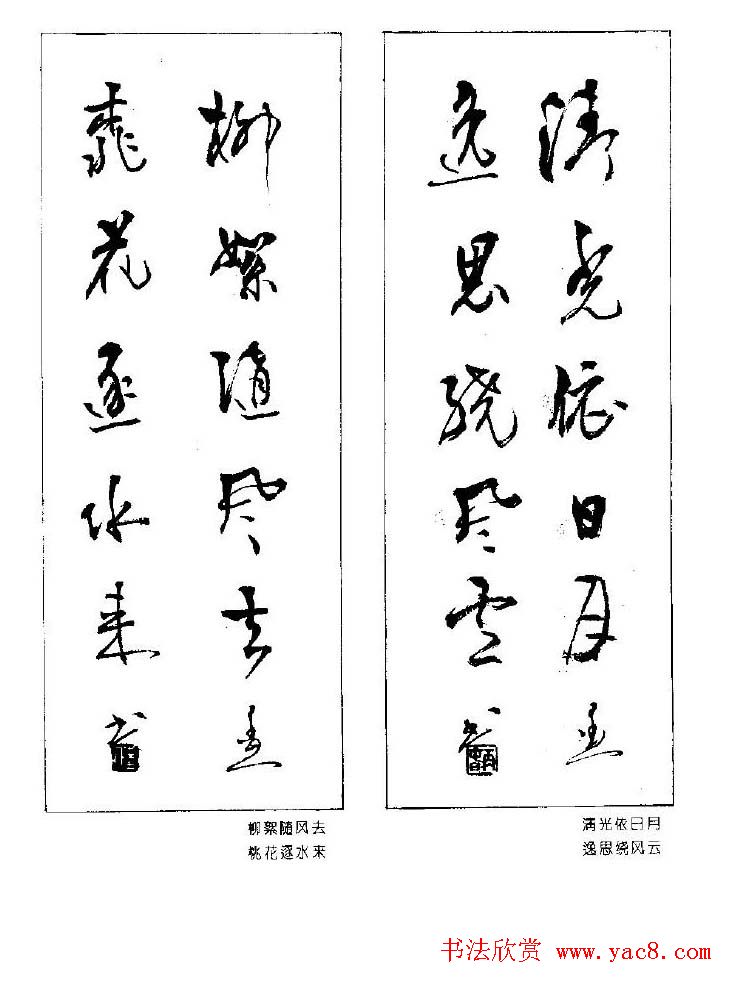 清光依日月
逸思绕风雲
柳絮随风去
桃花逐水来
清光依日月
逸思绕风云
柳絮随风去
桃花逐水来
书法欣赏 www.yac8.com